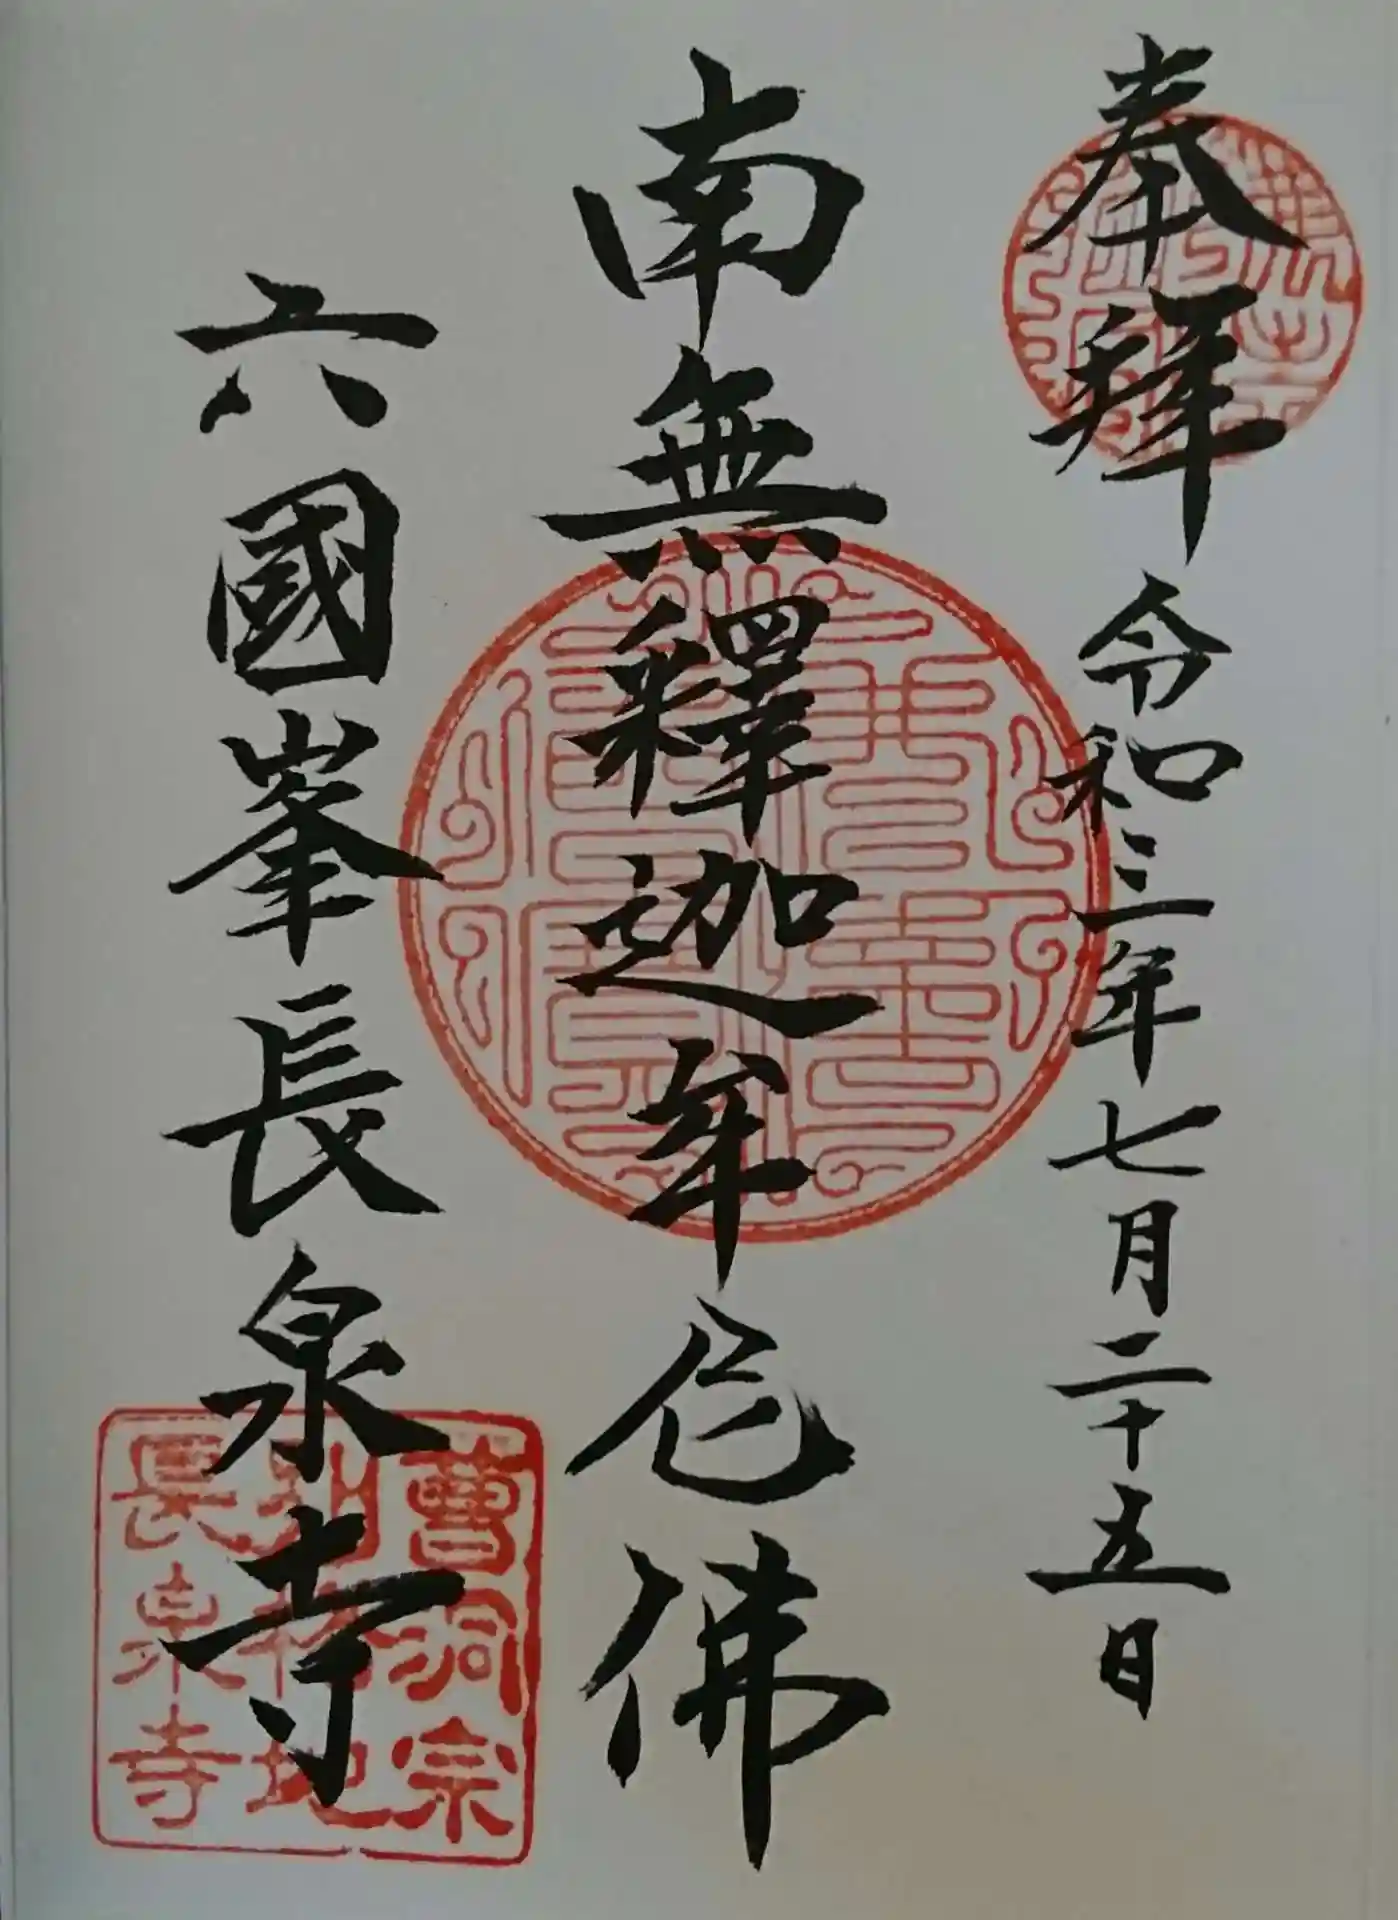 奉拜
令和三年七月二十五日
南無釋迦牟尼佛
六國峯長泉寺
曹洞宗
別格地
長泉寺